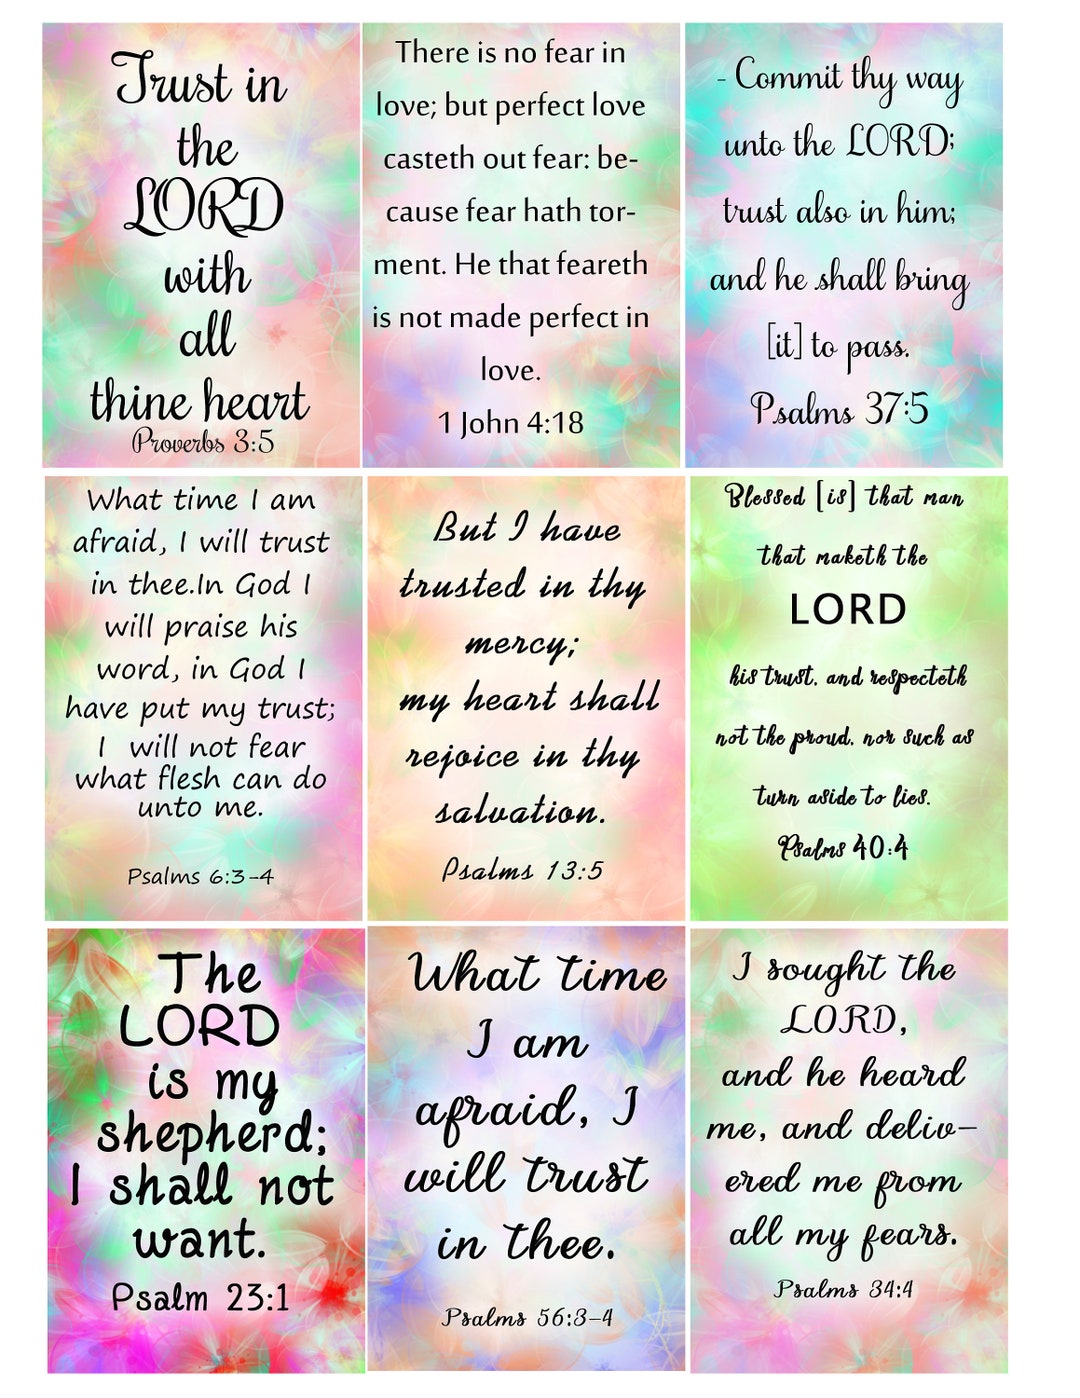 Trust in
the
LORD
with
all
thine heart
Proverbs 3:5
There is no fear in
love; but perfect love
casteth out fear: be-
cause fear hath tor-
ment. He that feareth
is not made perfect in
love.
1 John 4:18
- Commit thy way
unto the LORD;
trust also in him;
and he shall bring
[it] to pass.
Psalms 37:5
What time I am
afraid, I will trust
in thee.In God I
will praise his
word, in God I
have put my trust;
I will not fear
what flesh can do
unto me.
Psalms 6:3-4
But I have
trusted in thy
mercy;
my heart shall
rejoice in thy
salvation.
Psalms 13:5
Blessed [is] that man
that maketh the
LORD
his trust, and respecteth
not the proud, nor such as
turn aside to lies.
Psalms 40:4
The
LORD
is my
shepherd;
I shall not
want.
Psalm 23:1
What time
I am
afraid, I
will trust
in thee.
Psalms 56:3-4
I sought the
LORD,
and he heard
me, and deliv-
ered me from
all my fears.
Psalms 34:4